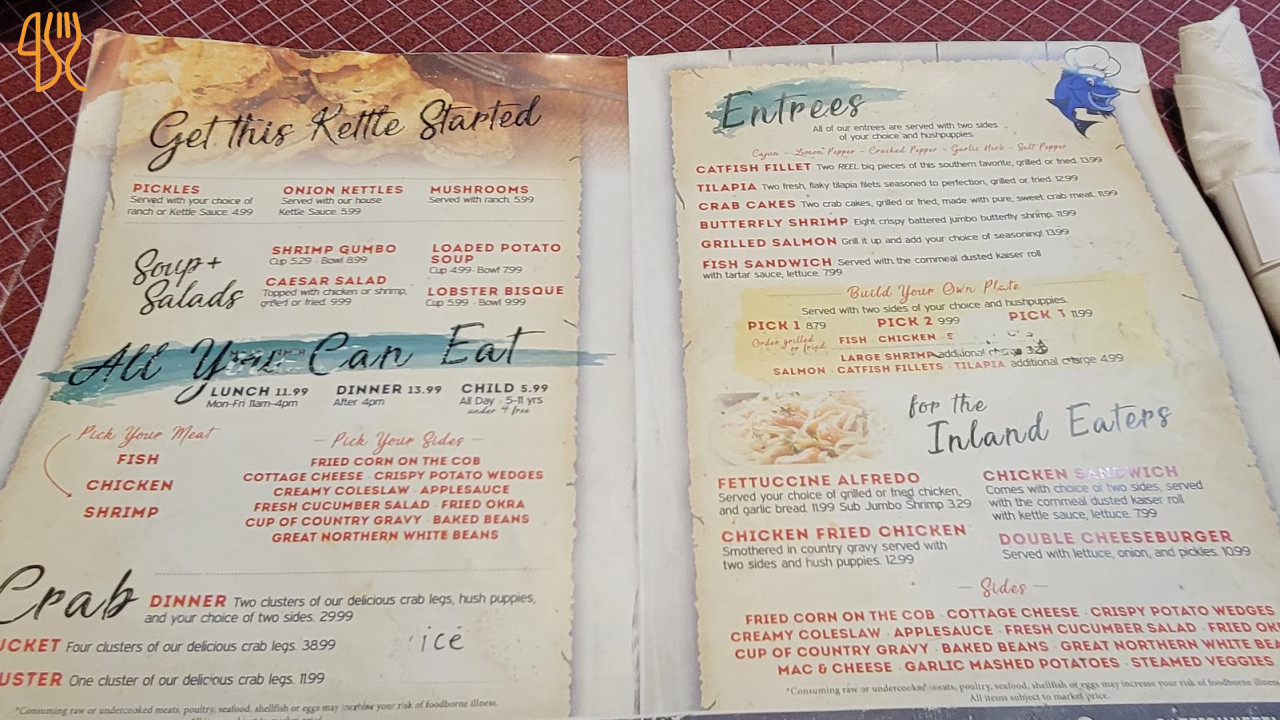 Get this Kettle Started
PICKLES
Served with your choice of
ranch or Kettle Sauce 4.99
ONION KETTLES
Served with our house
Kettle Sauce 5.99
MUSHROOMS
Served with ranch 5.99
Soup +
Salads
SHRIMP GUMBO
Cup 5.29 · Bowl 8.99
CAESAR SALAD
Topped with chicken or shrimp,
grilled or fried 9.99
LOADED POTATO
SOUP
Cup 4.99 · Bowl 7.99
LOBSTER BISQUE
Cup 5.99 · Bowl 9.99
All You Can Eat
LUNCH 11.99
Mon-Fri 11am-4pm
DINNER 13.99
After 4pm
CHILD 5.99
All Day · 5-11 yrs
under 4 free
Pick Your Meat
FISH
CHICKEN
SHRIMP
— Pick Your Sides —
FRIED CORN ON THE COB
COTTAGE CHEESE · CRISPY POTATO WEDGES
CREAMY COLESLAW · APPLESAUCE
FRESH CUCUMBER SALAD · FRIED OKRA
CUP OF COUNTRY GRAVY · BAKED BEANS
GREAT NORTHERN WHITE BEANS
Crab
DINNER Two clusters of our delicious crab legs, hush puppies,
and your choice of two sides. 29.99
Four clusters of our delicious crab legs. 38.99
One cluster of our delicious crab legs. 11.99
ice
*Consuming raw or undercooked meats, poultry, seafood, shellfish or eggs may increase your risk of foodborne illness.
Entrees
All of our entrees are served with two sides
of your choice and hushpuppies.
Cajun - Lemon Pepper - Cracked Pepper - Garlic Herb - Salt Pepper
CATFISH FILLET Two REEL big pieces of this southern favorite, grilled or fried. 13.99
TILAPIA Two fresh, flaky tilapia filets seasoned to perfection, grilled or fried. 12.99
CRAB CAKES Two crab cakes, grilled or fried, made with pure, sweet crab meat. 11.99
BUTTERFLY SHRIMP Eight crispy battered jumbo butterfly shrimp. 11.99
GRILLED SALMON Grill it up and add your choice of seasoning! 13.99
FISH SANDWICH Served with the cornmeal dusted kaiser roll
with tartar sauce, lettuce. 7.99
Build Your Own Plate
Served with two sides of your choice and hushpuppies.
PICK 1 8.79
PICK 2 9.99
PICK 3 11.99
Order grilled
or fried
FISH · CHICKEN ·
LARGE SHRIMP additional
SALMON · CATFISH FILLETS · TILAPIA additional charge 4.99
for the
Inland Eaters
FETTUCCINE ALFREDO
Served your choice of grilled or fried chicken,
and garlic bread. 11.99 Sub Jumbo Shrimp 3.29
CHICKEN FRIED CHICKEN
Smothered in country gravy served with
two sides and hush puppies. 12.99
CHICKEN SANDWICH
Comes with choice of two sides, served
with the cornmeal dusted kaiser roll
with kettle sauce, lettuce. 7.99
DOUBLE CHEESEBURGER
Served with lettuce, onion, and pickles. 10.99
— Sides —
FRIED CORN ON THE COB · COTTAGE CHEESE · CRISPY POTATO WEDGES
CREAMY COLESLAW · APPLESAUCE · FRESH CUCUMBER SALAD · FRIED
CUP OF COUNTRY GRAVY · BAKED BEANS · GREAT NORTHERN WHITE
MAC & CHEESE · GARLIC MASHED POTATOES · STEAMED VEGGIES
*Consuming raw or undercooked meats, poultry, seafood, shellfish or eggs may increase your risk of foodborne illness.
All items subject to market price.